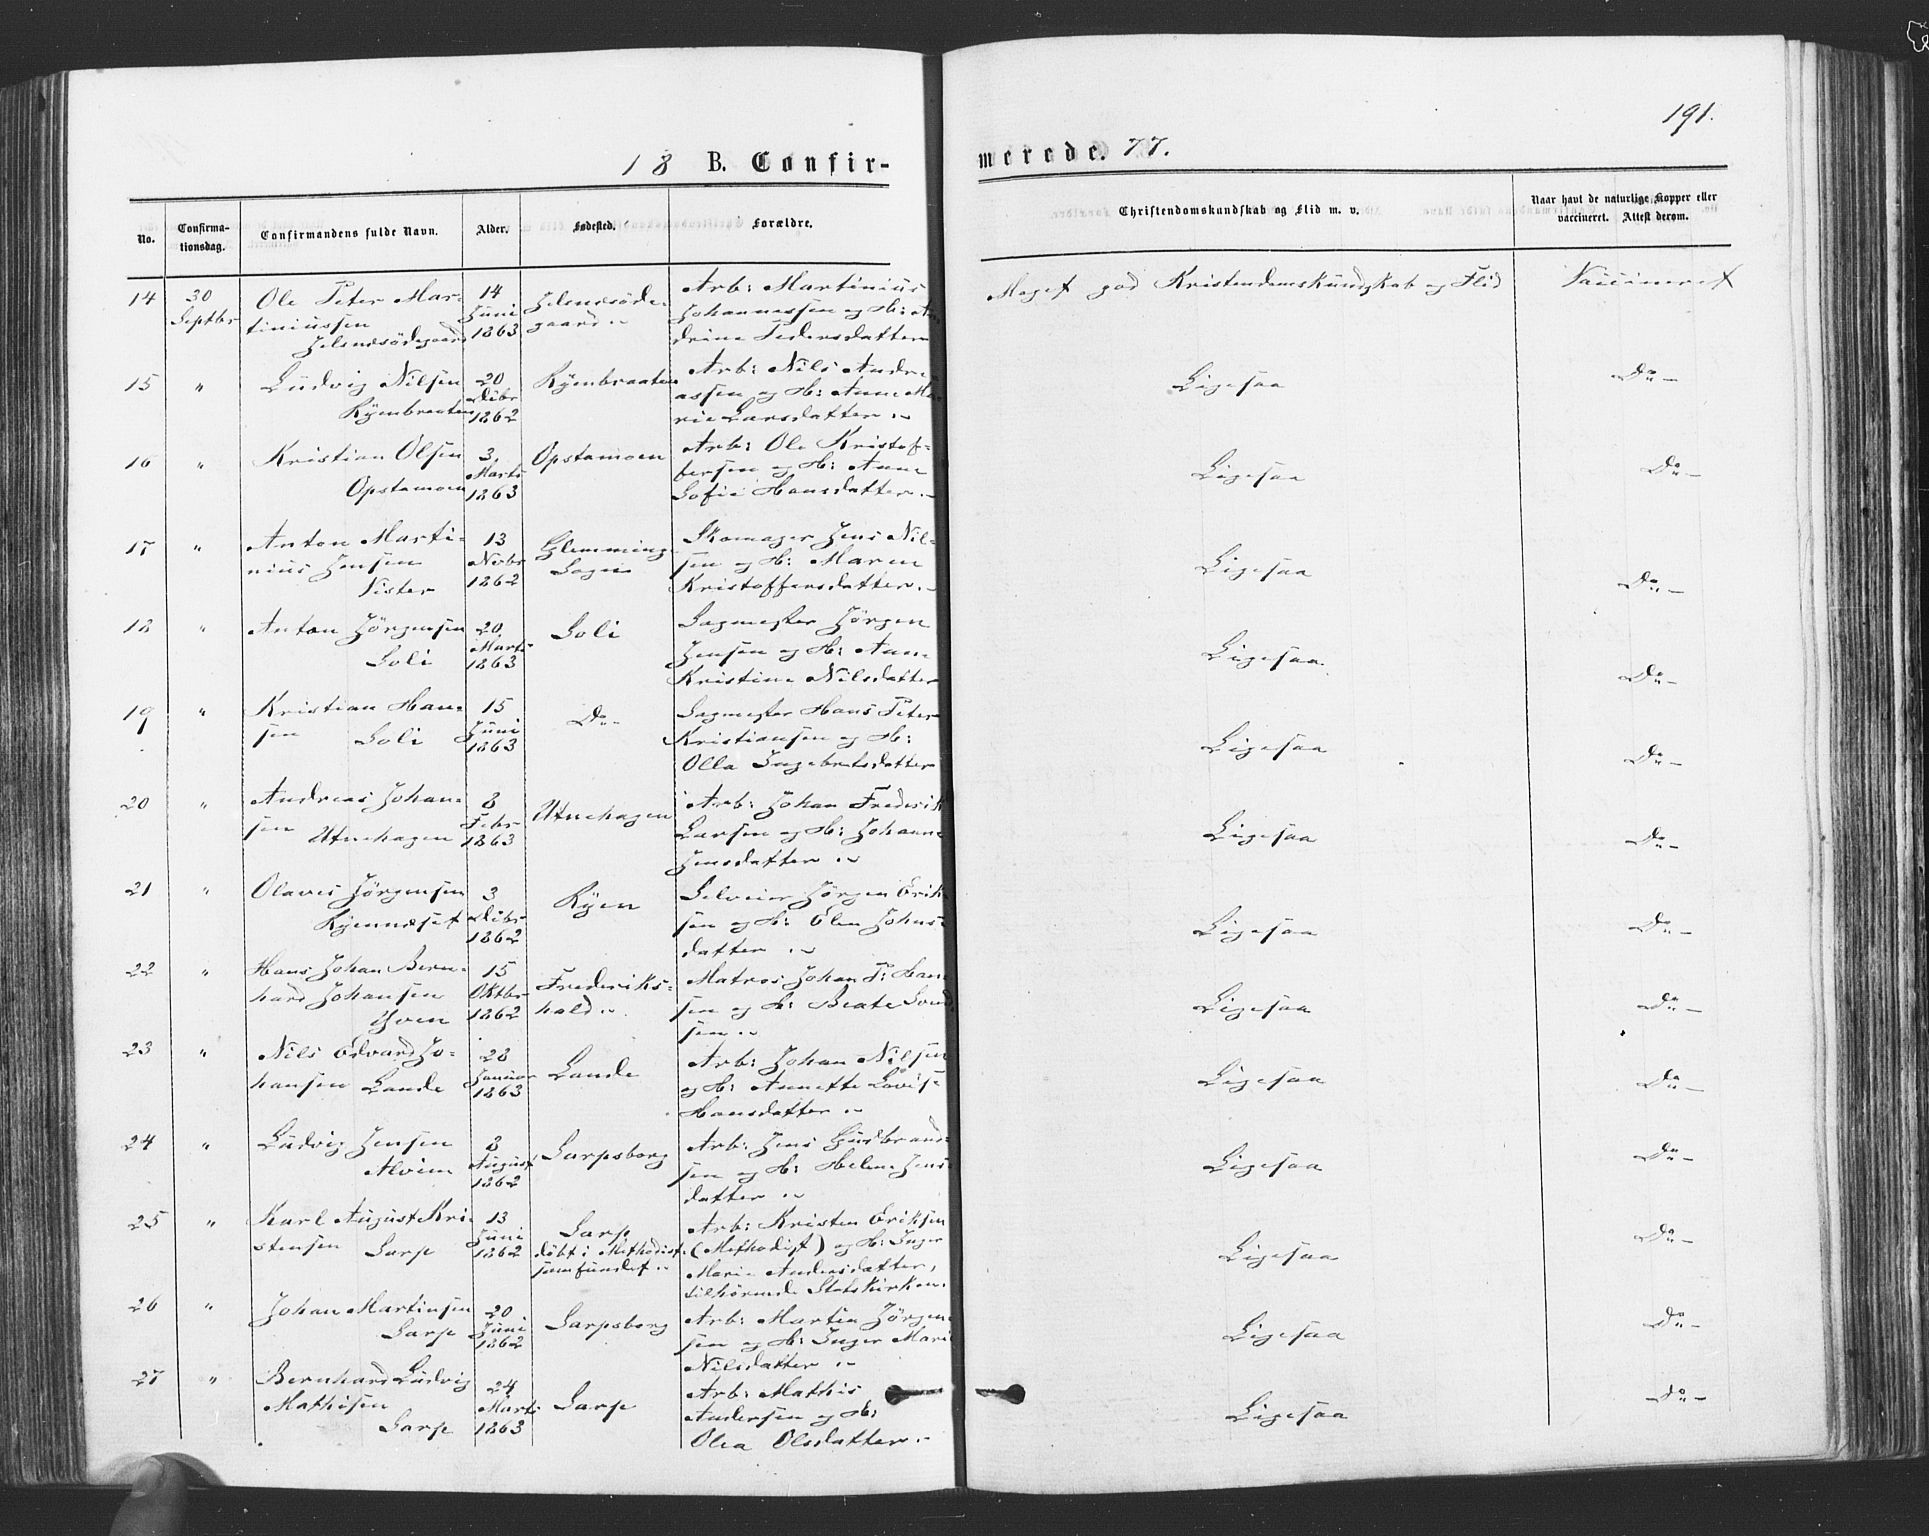 191.
18 B. Confir-
merede. 77.
No.
Confirma-
tionsdag.
Confirmandens fulde Navn.
Alder.
Fødested.
Forældre.
Christendomskundskab og Flid m. v.
Naar havt de naturlige Kopper eller
vaccineret. Attest derom.
14 30 Septbr
Ole Peter Mar-
tiniussen
14
Juni
1863
Arb: Martinius
Johannessen og H: An-
drine Pedersdatter
Meget god Kristendomskundskab og Flid
Vaccineret
15 "
Ludvig Nilsen
Kÿmbraaten
20
Dcbr
1862
Kÿmbraaten
Arb: Nils Andre-
assen og H: Anne Ma-
rie Larsdatter
Ligesaa
Do-
16 "
Kristian Olsen
Opstamoen
3.
Marts
1863
Opstamoen
Arb: Ole Kristof-
fersen og H: Anne
Sofie Hansdatter.
Ligesaa
Do-
17 "
Anton Marti-
nius Jensen
Vister
13
Novbr
1862
Glemminge
Sogn
Skomager Jens Nil-
sen og H: Maren
Kristoffersdatter.
Ligesaa
Do-
18 "
Anton Jörgensen
Soli
20
Marts
1863
Soli
Sagmester Jörgen
Jensen og H: Anne
Kristine Nilsdatter
Ligesaa.
Do-
19 "
Kristian Han-
sen Soli
15
Juni
1863
Do-
Sagmester Hans Peter
Kristiansen og H:
Olla Ingebretsdatter
Ligesaa
Do-
20 "
Andreas Johan-
sen
Utnehagen
8
Febr
1863
Utnehagen
Arb: Johan Frederik
Larsen og H: Johanne
Jensdatter
Ligesaa
Do-
21 "
Olaves Jörgensen
3
Dcbr
1862
Kÿen
Selveier Jörgen Erik-
sen og H: Elen Johns-
datter
Ligesaa
Do-
22 "
Hans Johan Bern-
hard Johansen
Yven
15
Oktbr
1862
Frederiks-
hald
Matros Johan P: Han-
sen og H: Beate Svend-
sen
Ligesaa
Do-
23 "
Nils Edvard Jo-
hansen Lande
28
Januar
1863
Lande
Arb: Johan Nilsen
og H: Annette Lovise
Hansdatter
Ligesaa
Do-
24 "
Ludvig Jensen
Alvim
8
August
1862
Sarpsborg
Arb: Jens Gudbrand-
sen og H: Helene Jens-
datter
Ligesaa
Do-
25 "
Karl August Kri-
stensen Sarp
13
Juni
1862
Sarp
döbt i Methodist-
samfundet
Arb: Kristen Eriksen
(Methodist) og H: Inger
Marie Andersdatter,
tilhörende Statskirken.
Ligesaa
Do-
26 "
Johan Martinsen
Sarp
20
Juni
1862
Sarpsborg
Arb: Martin Jörgen-
sen og H: Inger Marie
Nilsdatter
Ligesaa
Do-
27 "
Bernhard Ludvig
Mathisen
Sarp
24
Marts
1863
Sarp
Arb: Mathis
Andersen og H:
Olea Olsdatter.
Ligesaa
Do-